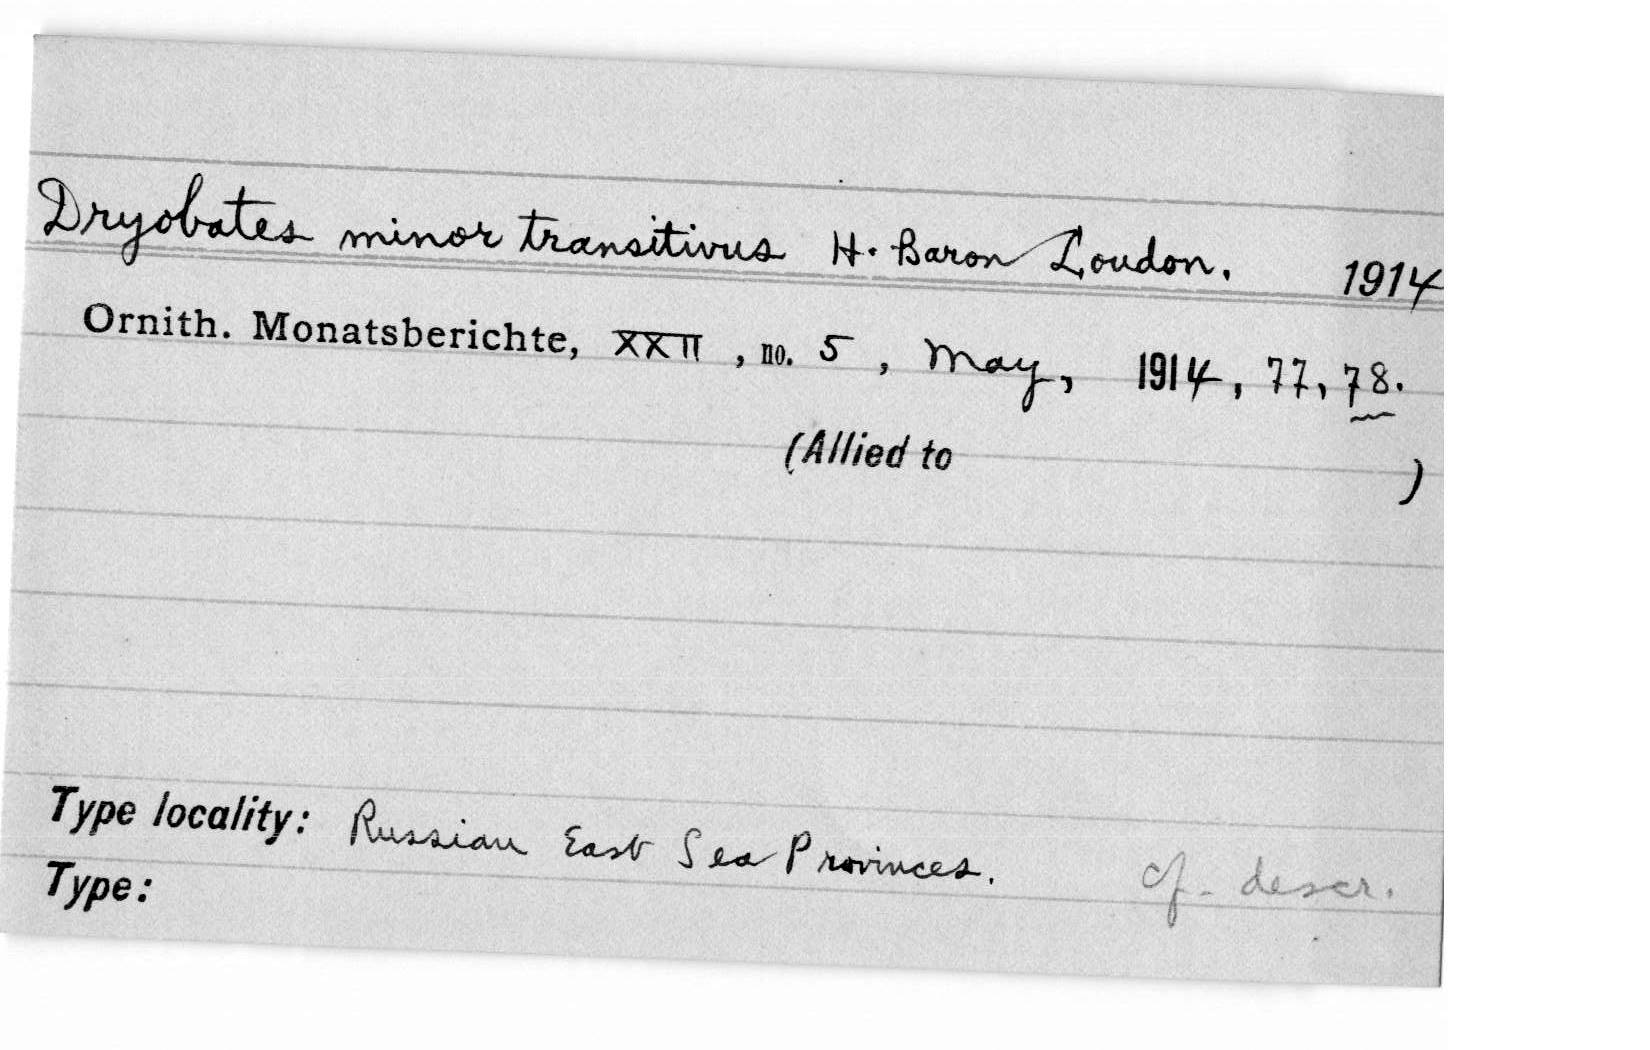 Dryobates minor transitivus H. Baron Loudon. 1914
Ornith. Monatsberichte, XXII, no. 5, May, 1914, 77, 78.
(Allied to )
Type locality: Russian East Sea Provinces. cf. descr.
Type: